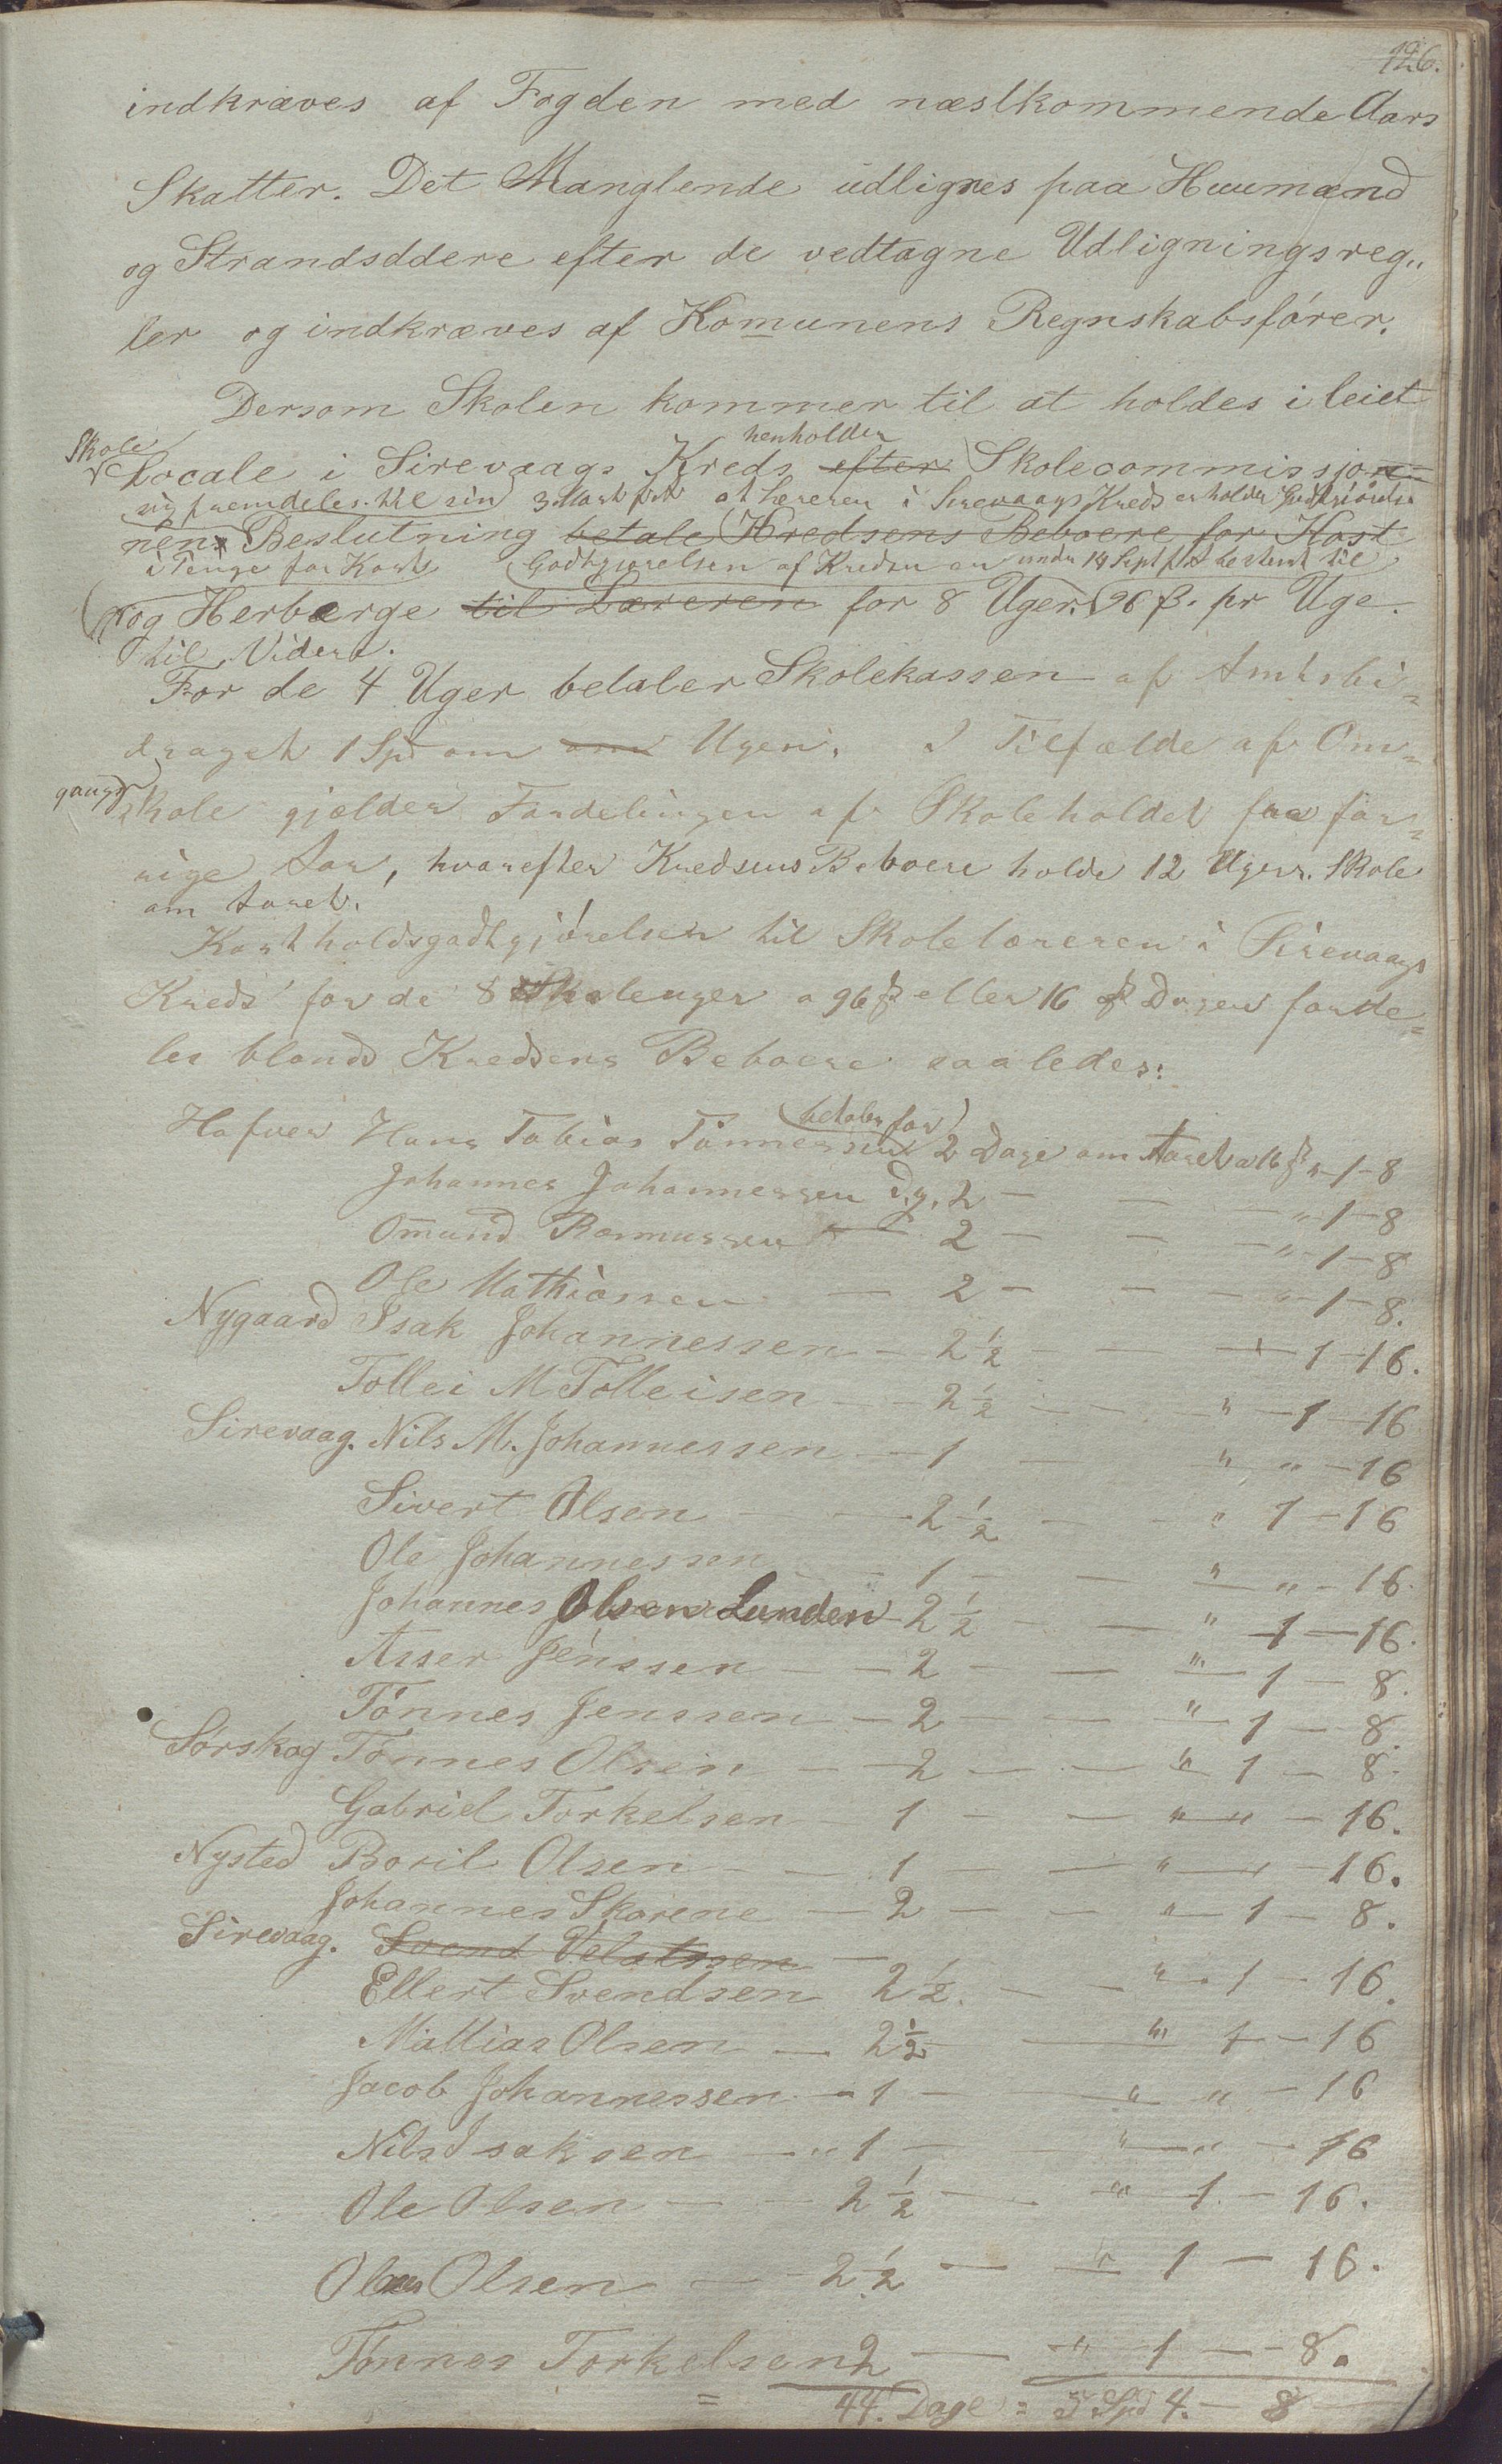 126.
indkræves af Fogden med næstkommende Aars
Skatter. Det Manglende udlignes paa Huusmænd
og Strandsiddere efter de vedtagne Udligningsreg„
ler og indkræves af Komunens Regnskabsfører.
Dersom Skolen kommer til at holdes i leiet
Skole henholder
Locale i Sirevaags Kreds efter Skolecommissjo=
sig fremdeles til sin 3 Marts at Læreren i Sirevaags Kreds erholder Godtgjørelse
nens Beslutning betale Kredsens Beboere for Kost
i Penge for Kost Godtgjørelsen af Kredsen er under 14 Sept bestemt til
og Herberge til Læreren for 8 Uger. 96 ß. pr Uge.
til Videre.
For de 4 Uger betaler Skolekassen af Amtsbi=
draget 1 Spd om Ugen. I Tilfælde af Om=
gangs
skole gjælder Fordelingen af Skoleholdet for for=
rige Aar, hvorefter Kredsens Beboere holde 12 Ugers Skole
om Aaret.
Kostholdsgodtgjørelsen til Skolelæreren i Sirevaags
Kreds for de 8 Skoleuger a 96 ß eller 16 ß Dagen forde=
les blandt Kredsens Beboere saaledes:
betaler for
Hafver Hans Tobias Tønnessen 2 Dage om Aaret a 16 ß „ 1 - 8
Johannes Johannessen d.g. 2 — — — „ 1 - 8
Omund Rasmussen — 2 — — — „ 1 - 8
Ole Mathiassen — 2 — — — „ 1 - 8.
Nygaard Isak Johannessen — 2 ½ — — — 1 - 16.
Tollei M Tolleisen — 2 ½ — — „ — 1 — 16
Sirevaag. Nils M. Johannessen — 1 — „ „ — 16
Sivert Olsen — 2 ½ — — „ 1 — 16
Ole Johannessen — 1 — — „ „ — 16.
Johannes Olsen Lunden — 2 ½ — — „ 1 — 16.
Asser Jenssen — — 2 — — „ 1 — 8.
Tönnes Jenssen — 2 — — „ 1 — 8.
Sørskog Tønnes Olsen — — 2 — — „ 1 — 8.
Gabriel Torkelsen — 1 — — „ „ — 16.
Nysted Boril Olsen — — 1 — — „ — 16.
Johannes Skarene — 2 — — „ 1 — 8.
Sirevaag. Svend Velatssen —
Ellert Svendsen 2 ½ — — „ 1 — 16.
Mattias Olsen — 2 ½ — „ 1 — 16
Jacob Johannessen — 1 — — „ „ — 16
Nils Isaksen — „ 1 — — „ „ — 16
Ole Olsen — — 2 ½ — „ 1 — 16.
Olaus Olsen — — 2 ½ — — „ 1 — 16.
Tønnes Torkelsen 2 — „ 1 — 8.
= 44. Dage = 5 Spd 4. — 8